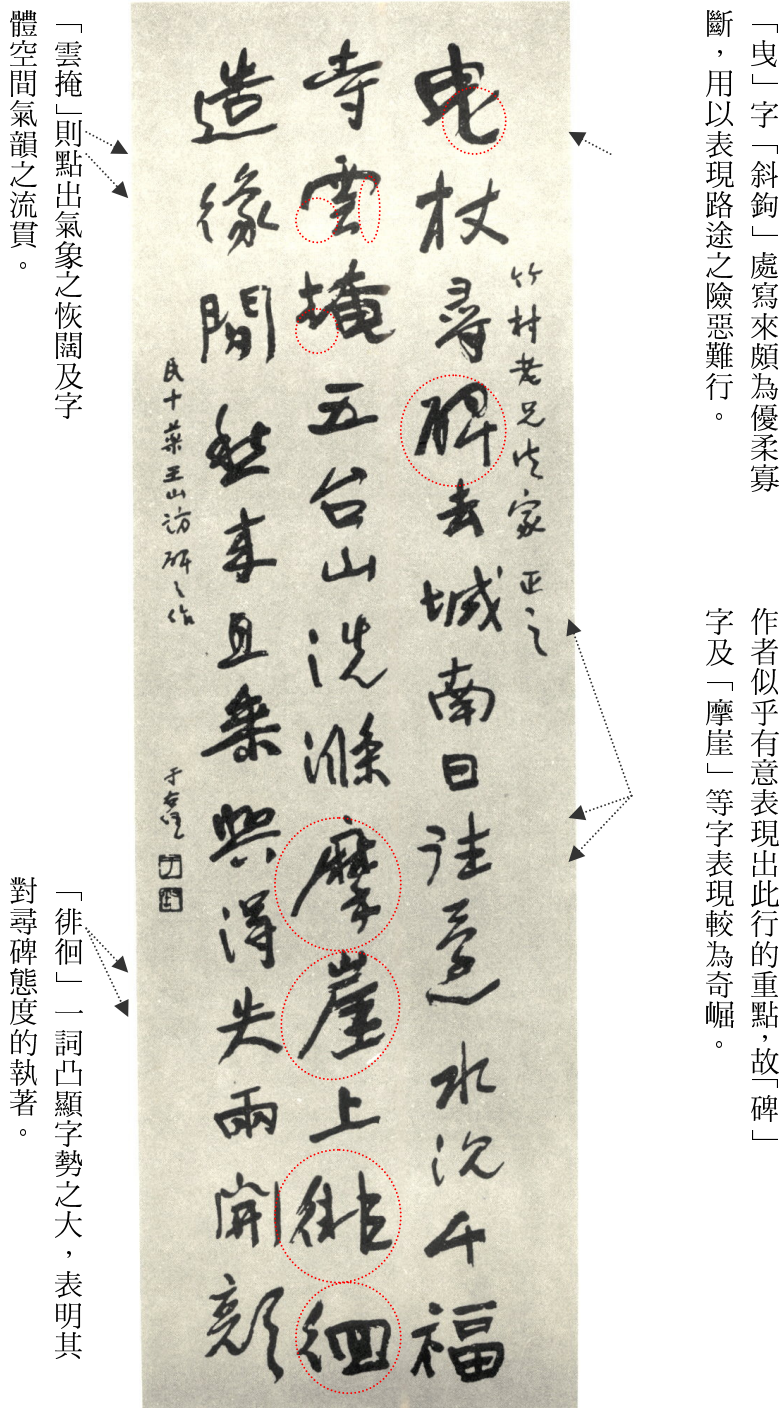 「曳」字「斜鉤」處寫來頗為優柔寡
斷，用以表現路途之險惡難行。
作者似乎有意表現出此行的重點，故「碑」
字及「摩崖」等字表現較為奇崛。
竹村老兄法家 正之
曳杖尋碑去城南日往還水沉千福
寺雲掩五台山洗滌摩崖上徘徊
造像間愁來且乘興得失兩開顏
民十藥王山訪碑之作
于右任
「雲掩」則點出氣象之恢闊及字
體空間氣韻之流貫。
「徘徊」一詞凸顯字勢之大，表明其
對尋碑態度的執著。